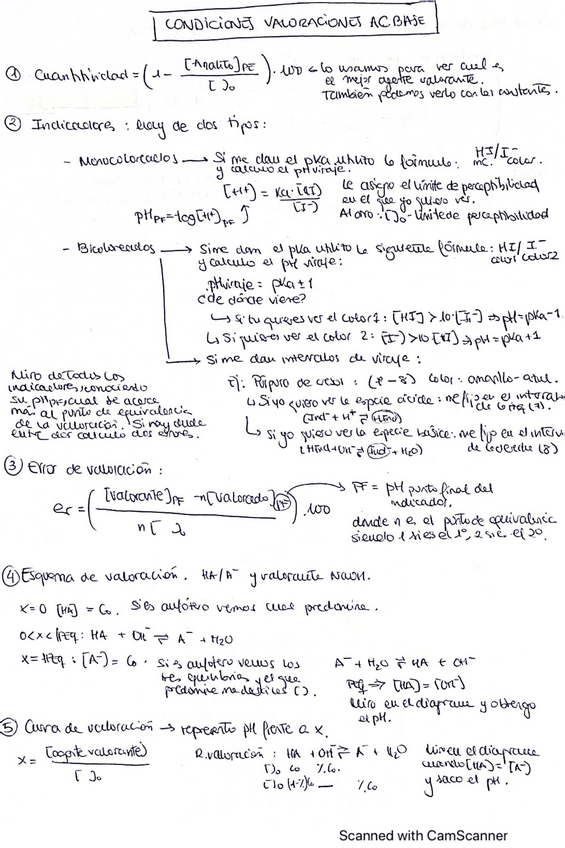 CONDICIONES VALORACIONES AC BASE
① Cuantitividad = (1 - [Analito]PE / [ ]o) · 100 ← lo usamos para ver cual es
el mejor agente valorante.
También podemos verlo con las constantes.
② Indicadores : hay de dos tipos:
- Monocoloreados → Si me dan el pKa utilizo la fórmula: HI/I⁻
y calculo el pHviraje. inc. color.
[H+] = Ka·[HI] / [I⁻] Le asigno el límite de perceptibilidad
en el que yo quiero ver.
pHPF = -log[H+]PF Al otro : [ ]o - límite de perceptibilidad
- Bicoloreados → Si me dan el pKa utilizo la siguiente fórmula: HI / I⁻
y calculo el pH viraje: color1 color2
pHviraje = pKa ± 1
¿de dónde viene?
↳ Si tu quieres ver el color 1: [HI] > 10·[I⁻] ⇒ pH = pKa - 1
↳ Si quieres ver el color 2: [I⁻] > 10 [HI] ⇒ pH = pKa + 1
→ Si me dan intervalos de viraje :
Miro de todos los
indicadores, conociendo
su pHPF, cual se acerca
más al punto de equivalencia
de la valoración. Si hay duda
entre dos calculo dos errores.
Ej: Púrpura de cresol : (7 - 8) color : amarillo - azul.
↳ Si yo quiero ver la especie ácida : me fijo en el intervalo
(Ind⁻ + H+ ⇌ HInd)
↳ si yo quiero ver la especie básica: me fijo en el interv
(HInd + OH⁻ ⇌ Ind⁻ + H2O) (8)
③ Error de valoración :
er = ([Valorante]PF - n[Valorado]PF / n[ ]o) · 100 → PF = pH punto final del
indicador.
donde n es el punto de equivalencia
siendo 1 si es el 1º, 2 si es el 2º.
④ Esquema de valoración. HA/A⁻ y valorante NaOH.
x=0 [HA] = Co. Si es anfótero vemos cual predomine.
0<x<1PEq : HA + OH⁻ ⇌ A⁻ + H2O
x=1PEq : [A⁻] = Co. Si es anfótero vemos los A⁻ + H2O ⇌ HA + OH⁻
tres equilibrios y el que PEq ⇒ [HA] = [OH⁻]
predomine me dará los [ ]. Miro en el diagrama y obtengo
el pH.
⑤ Curva de valoración → represento pH frente a x.
x = [agente valorante] / [ ]o R.valoración : HA + OH⁻ ⇌ A⁻ + H2O Miro en el diagrama
[ ]o Co % Co. cuando [HA] = [A⁻]
[ ]o (1-%)Co — % Co y saco el pH.
Scanned with CamScanner